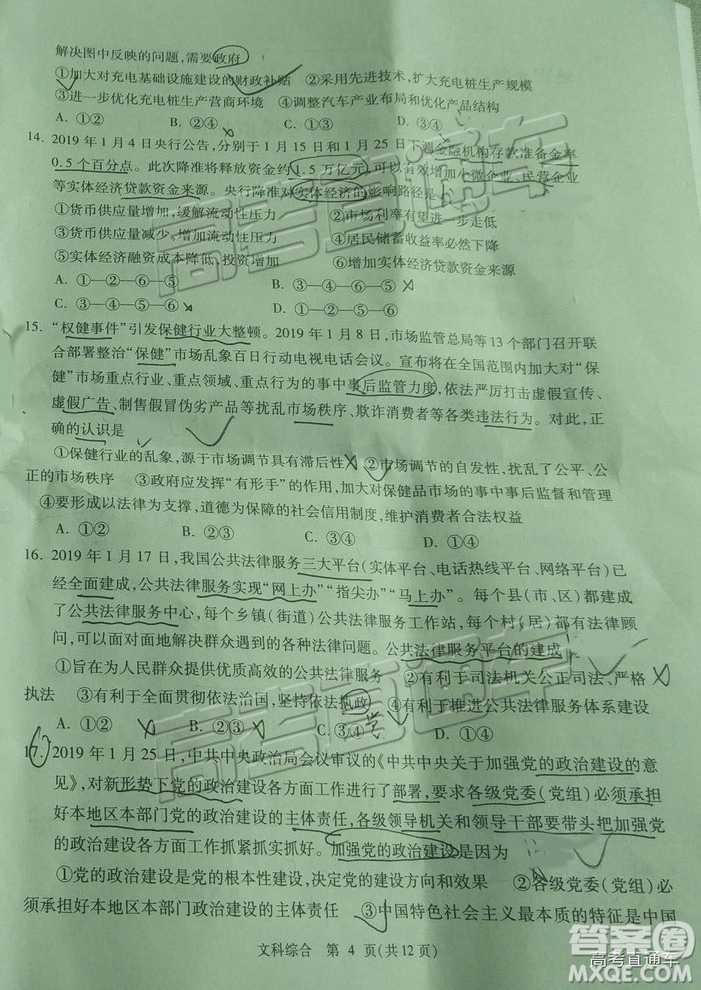 解决图中反映的问题,需要政府
①加大对充电基础设施建设的财政补贴 ②采用先进技术,扩大充电桩生产规模
③进一步优化充电桩生产营商环境 ④调整汽车产业布局和优化产品结构
A. ①② B. ②④ C. ①③ D. ③④
14. 2019 年 1 月 4 日央行公告,分别于 1 月 15 日和 1 月 25 日下调金融机构存款准备金率
0.5 个百分点。此次降准将释放资金约 1.5 万亿元,可以有效增加小微企业、民营企业
等实体经济贷款资金来源。央行降准对实体经济的影响路径是
①货币供应量增加,缓解流动性压力 ②市场利率有望进一步走低
③货币供应量减少,增加流动性压力 ④居民储蓄收益率必然下降
⑤实体经济融资成本降低,投资增加 ⑥增加实体经济贷款资金来源
A. ①—②—⑤ B. ③—④—⑥
C. ③—④—⑥—⑤ D. ①—⑥—②—⑤
15. “权健事件”引发保健行业大整顿。2019 年 1 月 8 日,市场监管总局等 13 个部门召开联
合部署整治“保健”市场乱象百日行动电视电话会议。宣布将在全国范围内加大对“保
健”市场重点行业、重点领域、重点行为的事中事后监管力度,依法严厉打击虚假宣传、
虚假广告、制售假冒伪劣产品等扰乱市场秩序、欺诈消费者等各类违法行为。对此,正
确的认识是
①保健行业的乱象,源于市场调节具有滞后性 ②市场调节的自发性,扰乱了公平、公
正的市场秩序 ③政府应发挥“有形手”的作用,加大对保健品市场的事中事后监督和管理
④要形成以法律为支撑,道德为保障的社会信用制度,维护消费者合法权益
A. ①② B. ③④ C. ②③ D. ①④
16. 2019 年 1 月 17 日,我国公共法律服务三大平台(实体平台、电话热线平台、网络平台)已
经全面建成,公共法律服务实现“网上办”“指尖办”“马上办”。每个县(市、区)都建成
了公共法律服务中心,每个乡镇(街道)公共法律服务工作站,每个村(居)都有法律顾
问,可以面对面地解决群众遇到的各种法律问题。公共法律服务平台的建成
①旨在为人民群众提供优质高效的公共法律服务 ②有利于司法机关公正司法、严格
执法 ③有利于全面贯彻依法治国,坚持依法执政 ④有利于推进公共法律服务体系建设
A. ①② B. ②③ C. ③④ D. ①④
17. 2019 年 1 月 25 日,中共中央政治局会议审议的《中共中央关于加强党的政治建设的意
见》,对新形势下党的政治建设各方面工作进行了部署,要求各级党委(党组)必须承担
好本地区本部门党的政治建设的主体责任,各级领导机关和领导干部要带头把加强党
的政治建设各方面工作抓紧抓实抓好。加强党的政治建设是因为
①党的政治建设是党的根本性建设,决定党的建设方向和效果 ②各级党委(党组)必
须承担好本地区本部门政治建设的主体责任 ③中国特色社会主义最本质的特征是中国
文科综合 第 4 页(共12页)
高考直通车
高考直通车
答案圈
MXQE.COM
高考直通车